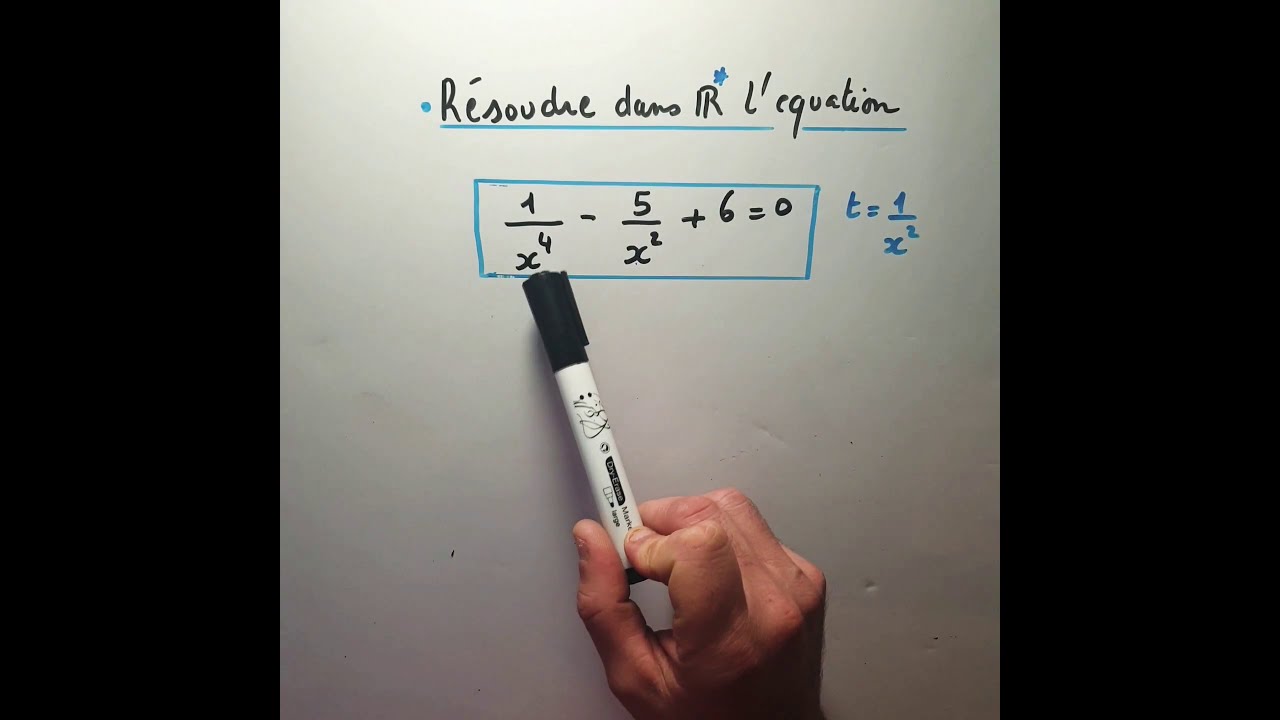 • Résoudre dans ℝ* l'equation
1/x⁴ - 5/x² + 6 = 0
t = 1/x²
Dry-Erase Marke
large